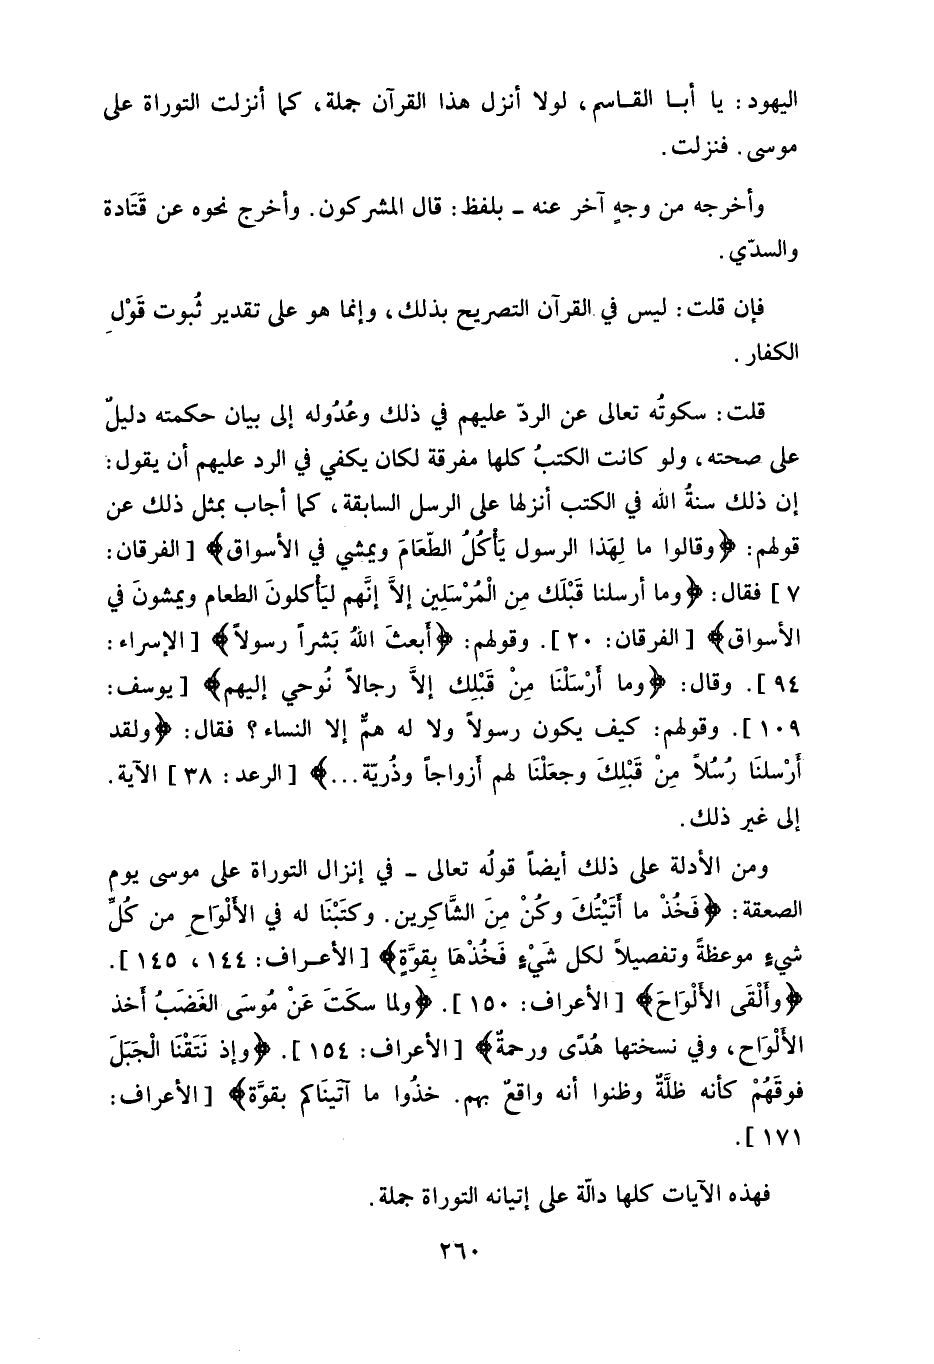 اليهود: يا أبا القاسم، لولا أنزل هذا القرآن جملة، كما أنزلت التوراة على
موسى. فنزلت.
وأخرجه من وجهٍ آخر عنه - بلفظ: قال المشركون. وأخرج نحوه عن قَتَادة
والسدّي.
فإن قلت: ليس في القرآن التصريح بذلك، وإنما هو على تقدير ثُبوت قَوْلِ
الكفار.
قلت: سكوتُه تعالى عن الردّ عليهم في ذلك وعُدُوله إلى بيان حكمته دليلٌ
على صحته، ولو كانت الكتبُ كلها مفرقة لكان يكفي في الرد عليهم أن يقول:
إن ذلك سنةُ الله في الكتب أنزلها على الرسل السابقة، كما أجاب بمثل ذلك عن
قولهم: ﴿وقالوا ما لِهَذا الرسول يَأْكُلُ الطّعَامَ ويمشي في الأسواق﴾ [الفرقان:
٧] فقال: ﴿وما أرسلنا قَبْلَك مِن الْمُرْسَلِين إلاَّ إنَّهم ليَأْكلونَ الطعام ويمشونَ في
الأسواق﴾ [الفرقان: ٢٠]. وقولهم: ﴿أَبعثَ اللهُ بَشراً رسولاً﴾ [الإسراء:
٩٤]. وقال: ﴿وما أَرْسَلْنَا مِنْ قَبْلِك إلاَّ رجالاً نُوحي إليهم﴾ [يوسف:
١٠٩]. وقولهم: كيف يكون رسولاً ولا له همٌّ إلا النساء؟ فقال: ﴿ولقد
أَرْسلنَا رُسُلاً مِنْ قَبْلِكَ وجعَلْنَا لهم أزواجاً وذُريّة...﴾ [الرعد: ٣٨] الآية.
إلى غير ذلك.
ومن الأدلة على ذلك أيضاً قولُه تعالى - في إنزال التوراة على موسى يوم
الصعقة: ﴿فَخُذْ ما أَتَيْتُكَ وكُنْ مِنَ الشَّاكِرين. وكتَبْنَا له في الأَلْوَاحِ من كُلِّ
شيءٍ موعظةً وتفصيلاً لكل شَيْءٍ فَخُذْهَا بِقوَّةٍ﴾ [الأعراف: ١٤٤، ١٤٥].
﴿وأَلْقَى الأَلْوَاحَ﴾ [الأعراف: ١٥٠]. ﴿ولما سكَتَ عَنْ مُوسَى الغَضَبُ أخذ
الأَلْوَاح، وفي نسختها هُدًى ورحمةٌ﴾ [الأعراف: ١٥٤]. ﴿وإذ نَتَقْنَا الْجَبَلَ
فوقَهُمْ كأنه ظلَّةٌ وظنوا أنه واقعٌ بهم. خذُوا ما آتَيناكم بقوَّة﴾ [الأعراف:
١٧١].
فهذه الآيات كلها دالّة على إتيانه التوراة جملة.
٢٦٠